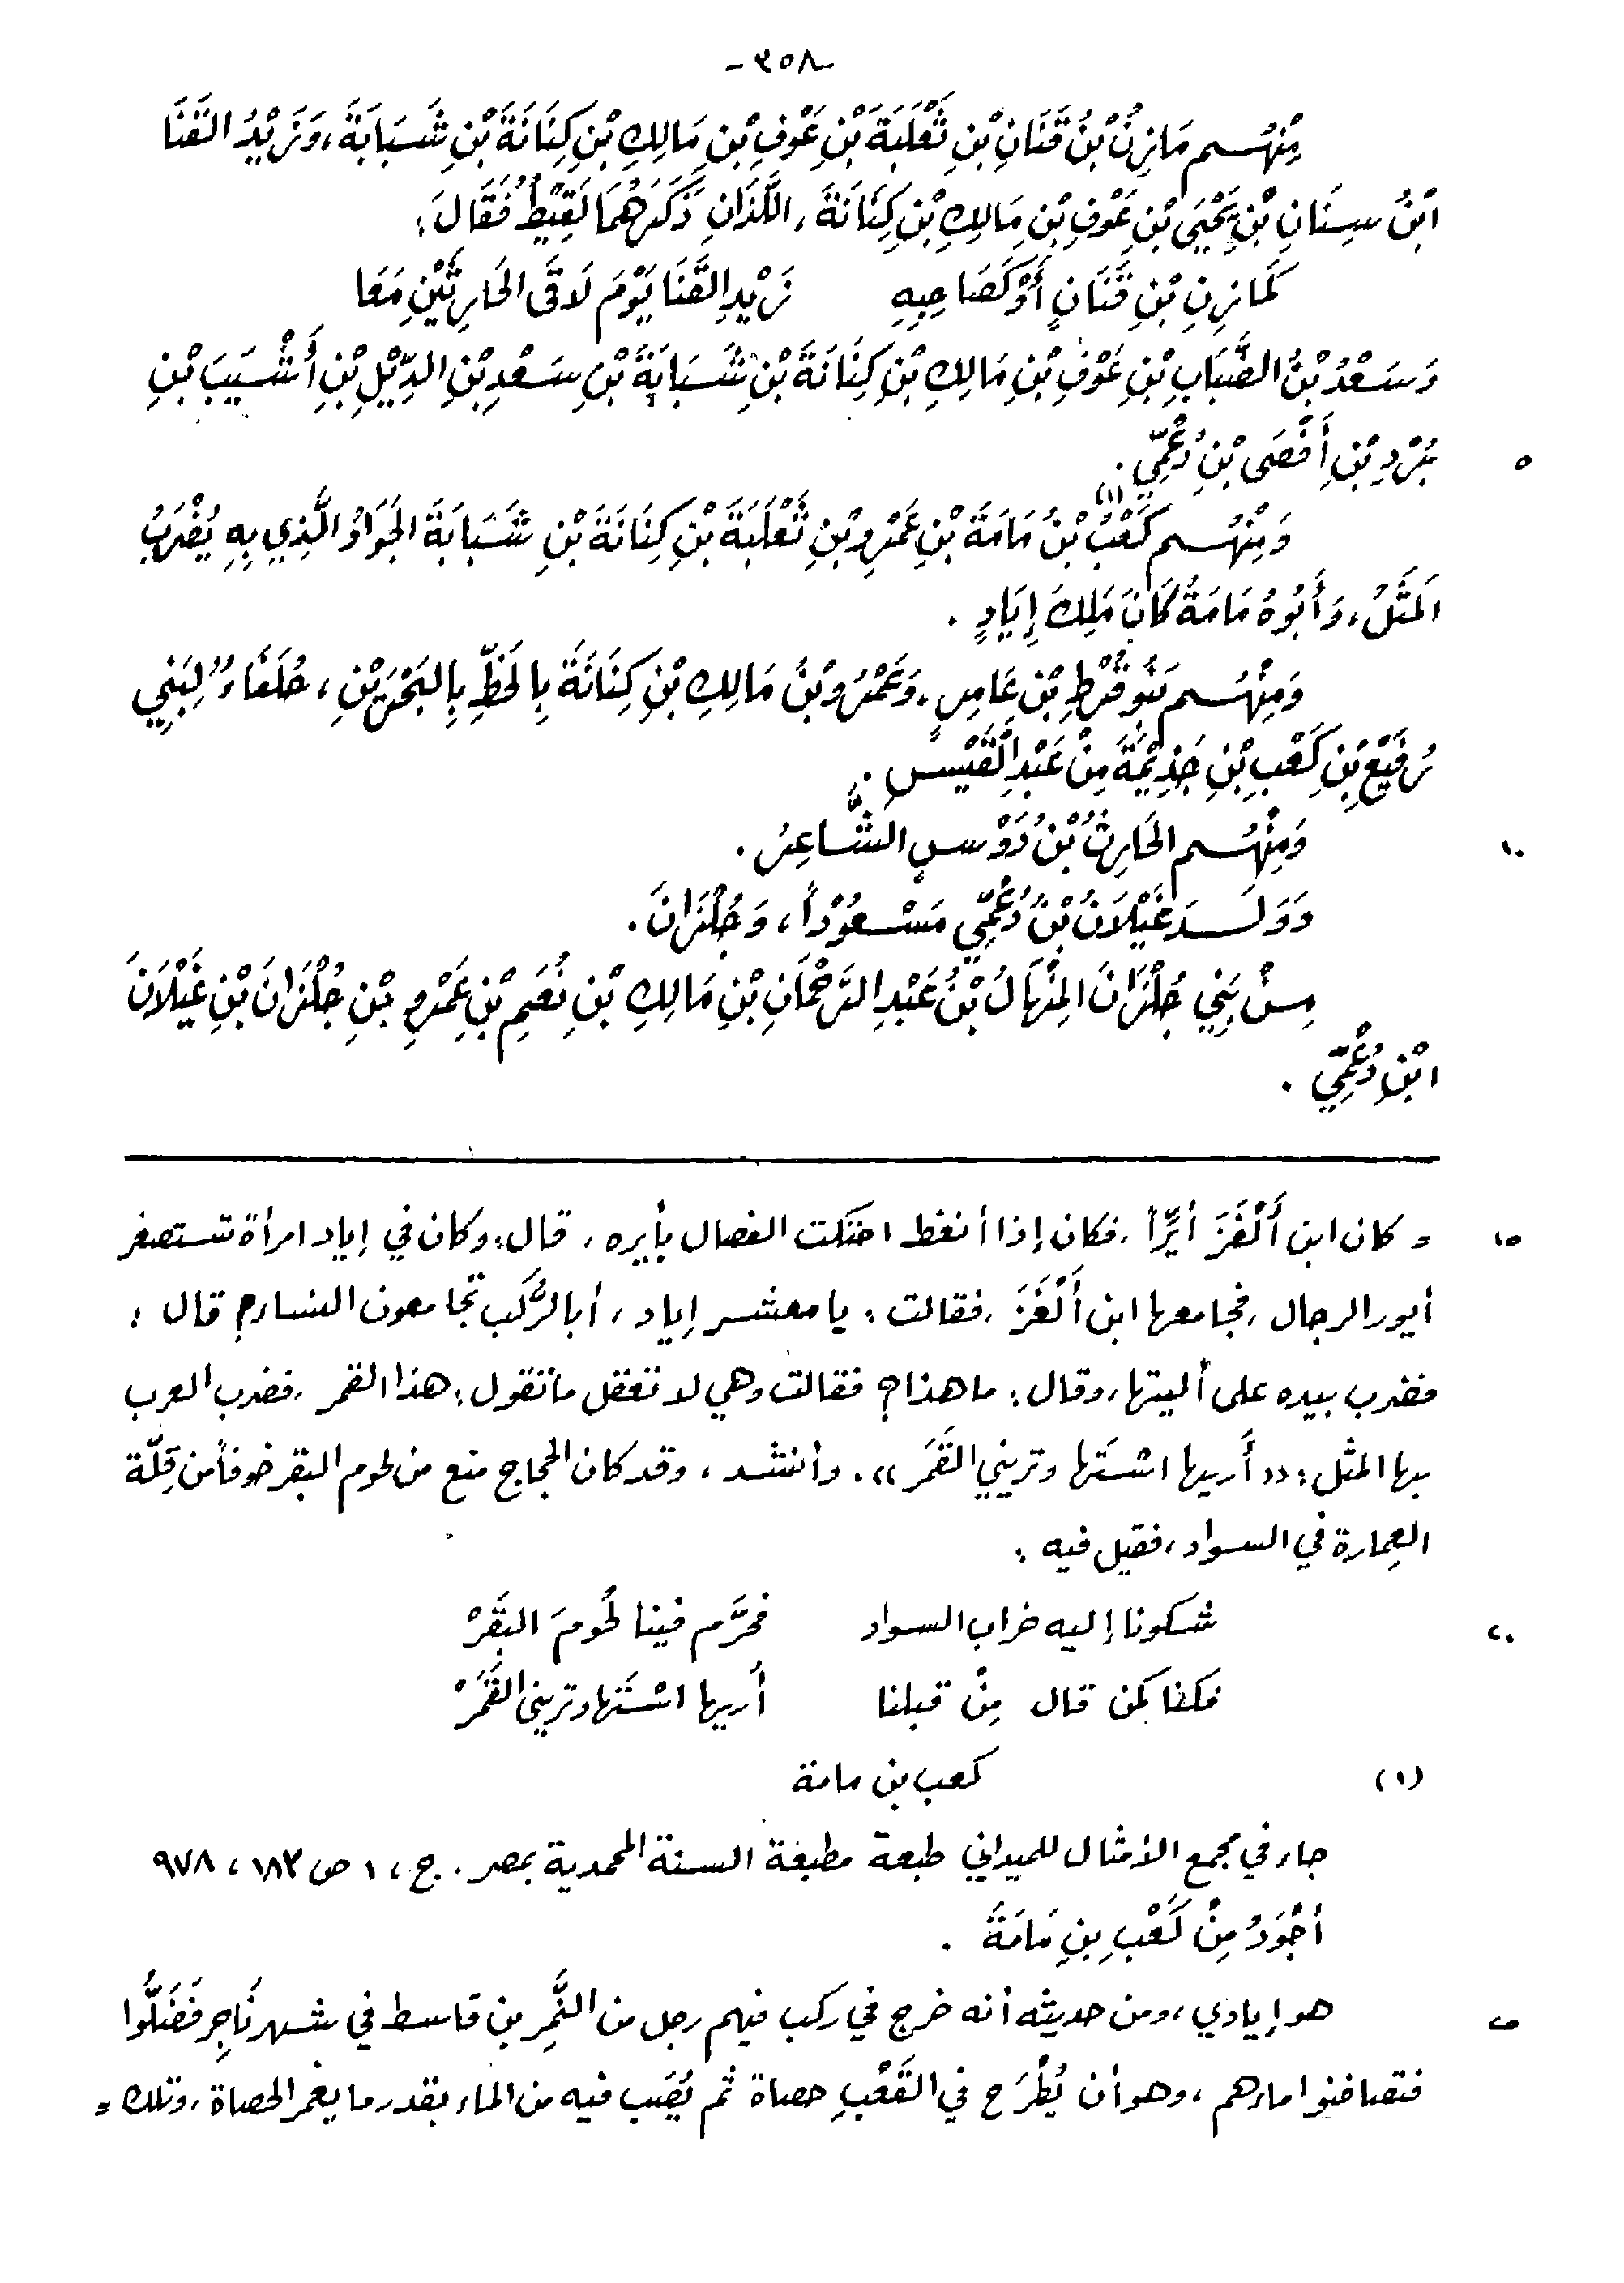 -٣٥٨-
مِنْهُم مَازِنُ بْنُ قَنَانِ بْنِ ثَعْلَبَةَ بْنِ عَوْفِ بْنِ مَالِكِ بْنِ كِنَانَةَ بْنِ شَبَابَةَ، وَزَيْدُ القَنَا
ابْنُ سِنَانِ بْنِ يَحْيَى بْنِ عَوْفِ بْنِ مَالِكِ بْنِ كِنَانَةَ، اللَّذَانِ ذَكَرَهُمَا لَقِيْطٌ فَقَالَ:
كَمَازِنِ بْنِ قَنَانٍ أَوْ كَصَاحِبِهِ زَيْدِ القَنَا يَوْمَ لَاقَى الحَارِثَيْنِ مَعَا
وَسَعْدُ بْنُ الضَّبَابِ بْنِ عَوْفِ بْنِ مَالِكِ بْنِ كِنَانَةَ بْنِ شَبَابَةَ بْنِ سَعْدِ بْنِ الدِّيْلِ بْنِ أُشَيْبَ بْنِ
٥ بُرْدِ بْنِ أَفْصَى بْنِ دُعْمِيّ.
وَمِنْهُم كَعْبُ (١) بْنُ مَامَةَ بْنِ عَمْرِو بْنِ ثَعْلَبَةَ بْنِ كِنَانَةَ بْنِ شَبَابَةَ الجَوَادُ الَّذِي بِهِ يُضْرَبُ
المَثَلُ، وَأَبُوهُ مَامَةُ كَانَ مَلِكَ إِيَادٍ.
وَمِنْهُم بَنُو قُرْطِ بْنِ عَامِرٍ، وَعَمْرُو بْنُ مَالِكِ بْنِ كِنَانَةَ بِالخَطِّ بِالبَحْرَيْنِ، حُلَفَاءُ لِبَنِي
رُفَيْعِ بْنِ كَعْبِ بْنِ جَذِيْمَةَ مِنْ عَبْدِ الْقَيْسِ.
١٠ وَمِنْهُم الحَارِثُ بْنُ دَوْسٍ الشَّاعِرُ.
وَوَلَدَ غَيْلَانُ بْنُ دُعْمِيّ مَسْعُوْدَاً، وَجُلْزَانَ.
مِنْ بَنِي جُلْزَانَ المِنْهَالُ بْنُ عَبْدِ الرَّحْمَانِ بْنِ مَالِكِ بْنِ نُعَيمِ بْنِ عَمْرِو بْنِ جُلْزَانَ بْنِ غَيْلَانَ
ابْنِ دُعْمِيّ.
١٥ = كان ابن أَلْغَزَ أيِّرَاً، فكان إذا أنغط احتكت الفصال بأيره، قال: وكان في إياد امرأة تستصغر
أيور الرجال، فجامعها ابن أَلْغَزَ، فقالت: يا معشر إياد، أبالرُّكَب تجامعون النساء؟ قال:
فضرب بيده على أليتها، وقال: ما هذا؟ فقالت وهي لا تعقل ما تقول: هذا القمر، فضرب العرب
بها المثل: «أُريها اسْتَها وتريني القَمَر». وأنشد، وقد كان الحجاج منع من لحوم البقر خوفاً من قِلّة
العِمارة في السواد، فقيل فيه:
٢٠ شكونا إليه خراب السواد فحرَّم فينا لُحومَ البَقَرْ
فكنا كمن قال مِنْ قبلنا أُريها اسْتَها وتريني القَمَرْ
(١) كعب بن مامة
جاء في مجمع الأمثال للميداني طبعة مطبعة السنة المحمدية بمصر. ج، ١ ص ١٨٣، ٩٧٨
أجْوَدُ مِنْ كَعْبِ بنِ مَامَةَ.
٢٥ هو إيادي، ومن حديثه أنه خرج في ركب فيهم رجل من النَّمِر بن قاسط في شهر نَاجِر فَضَلُّوا
فتصافنوا ماءهم، وهو أن يُطْرَح في القَعْبِ حصاة ثم يُصَب فيه من الماء بقدر ما يغمر الحصاة، وتلك =